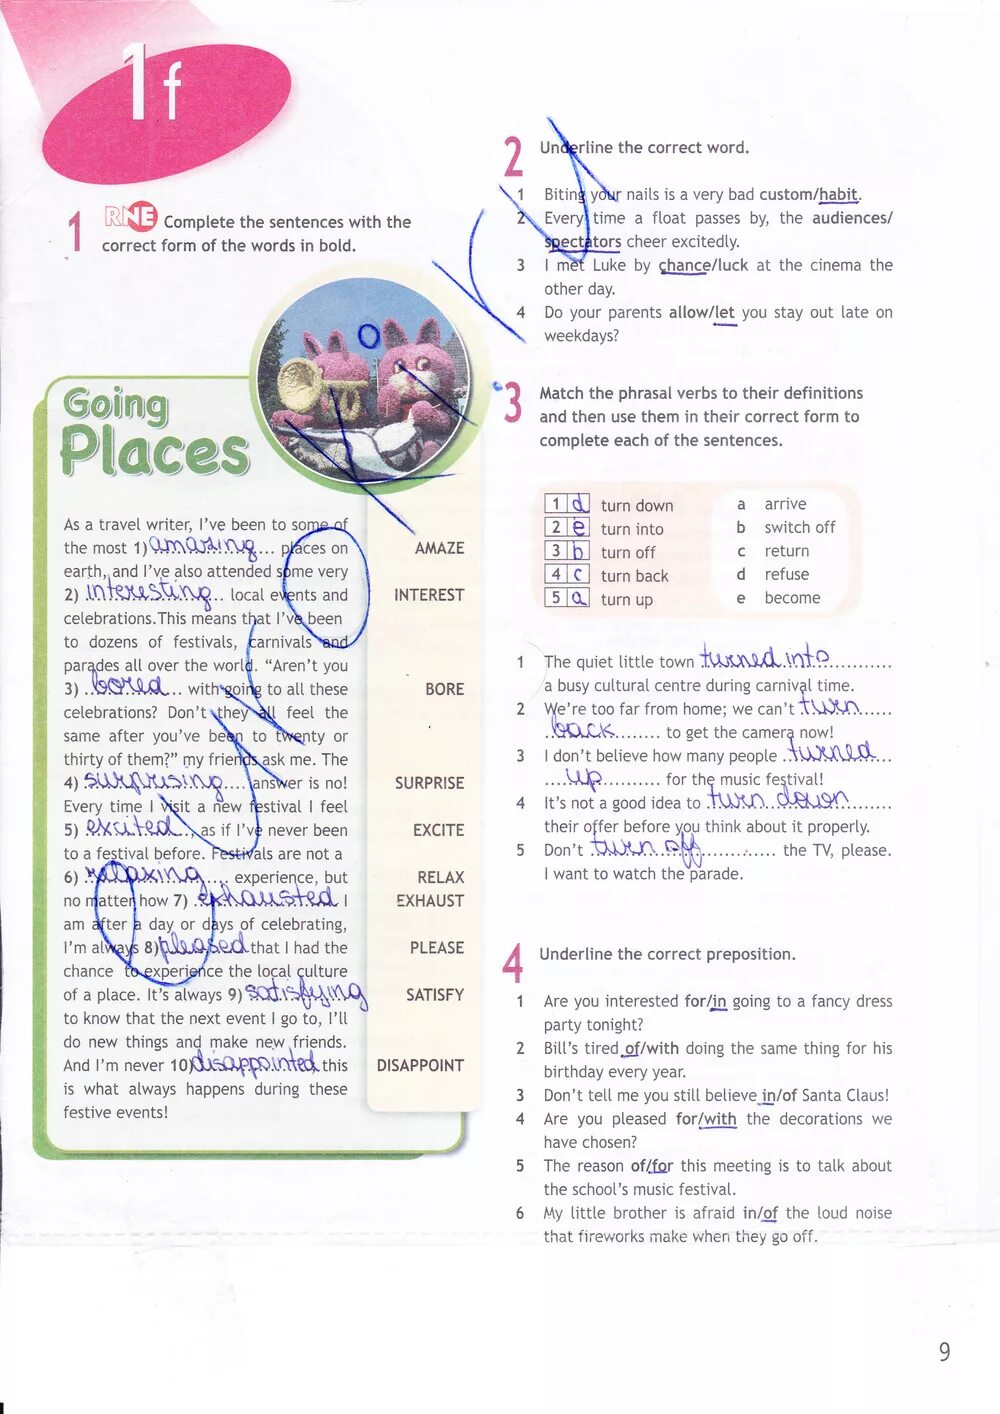 1f
1 RNE Complete the sentences with the
correct form of the words in bold.
Going
Places
As a travel writer, I've been to some of
the most 1) amazing places on AMAZE
earth, and I've also attended some very
2) interesting local events and INTEREST
celebrations. This means that I've been
to dozens of festivals, carnivals and
parades all over the world. "Aren't you
3) bored with going to all these BORE
celebrations? Don't they all feel the
same after you've been to twenty or
thirty of them?" my friends ask me. The
4) surprising answer is no! SURPRISE
Every time I visit a new festival I feel
5) excited, as if I've never been EXCITE
to a festival before. Festivals are not a
6) relaxing experience, but RELAX
no matter how 7) exhausted I EXHAUST
am after a day or days of celebrating,
I'm always 8) pleased that I had the PLEASE
chance to experience the local culture
of a place. It's always 9) satisfying SATISFY
to know that the next event I go to, I'll
do new things and make new friends.
And I'm never 10) disappointed this DISAPPOINT
is what always happens during these
festive events!
2 Underline the correct word.
1 Biting your nails is a very bad custom/habit.
2 Every time a float passes by, the audiences/
spectators cheer excitedly.
3 I met Luke by chance/luck at the cinema the
other day.
4 Do your parents allow/let you stay out late on
weekdays?
3 Match the phrasal verbs to their definitions
and then use them in their correct form to
complete each of the sentences.
1 d turn down a arrive
2 e turn into b switch off
3 b turn off c return
4 c turn back d refuse
5 a turn up e become
1 The quiet little town turned into
a busy cultural centre during carnival time.
2 We're too far from home; we can't turn
back to get the camera now!
3 I don't believe how many people turned
up for the music festival!
4 It's not a good idea to turn down
their offer before you think about it properly.
5 Don't turn off the TV, please.
I want to watch the parade.
4 Underline the correct preposition.
1 Are you interested for/in going to a fancy dress
party tonight?
2 Bill's tired of/with doing the same thing for his
birthday every year.
3 Don't tell me you still believe in/of Santa Claus!
4 Are you pleased for/with the decorations we
have chosen?
5 The reason of/for this meeting is to talk about
the school's music festival.
6 My little brother is afraid in/of the loud noise
that fireworks make when they go off.
9